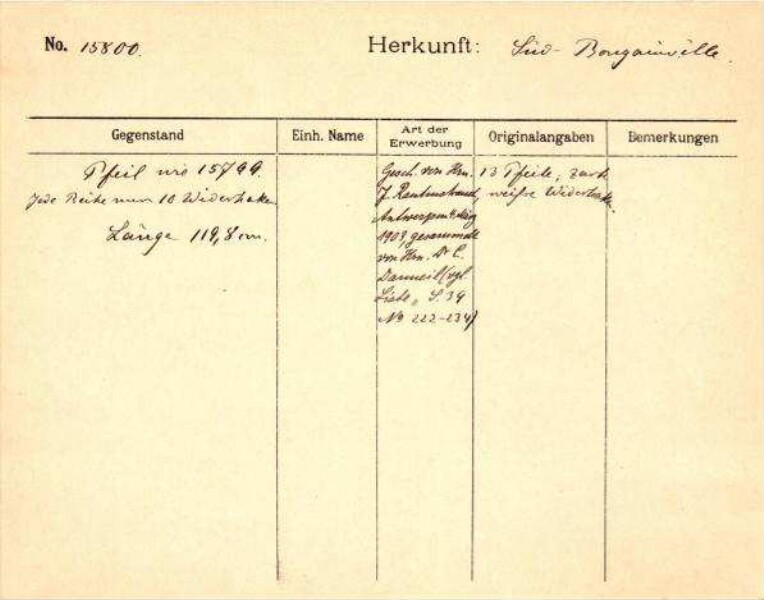 No. 15800.
Herkunft: Süd-Bougainville.
Gegenstand
Einh. Name
Art der Erwerbung
Originalangaben
Bemerkungen
Pfeil wie 15799.
Jede Reihe nur 10 Widerhaken
Länge 119,8 cm.
Gesch. von Hrn.
J. Rautenstrauch,
Antwerpen, März
1909, gesammelt
von Hrn. Dr C.
Danneil (vgl.
Liste, S. 39
No 222-234)
13 Pfeile, zart
weisse Widerhaken